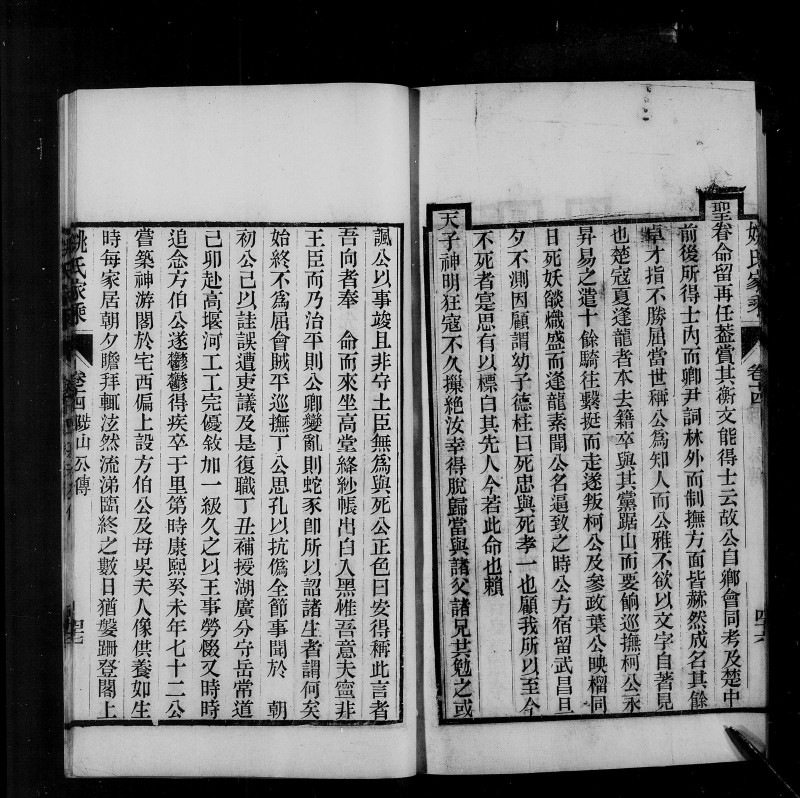 姚氏家乘
卷十四
四六
聖眷命留再任葢賞其衡文能得士云故公自鄉會同考及楚中
前後所得士內而卿尹詞林外而制撫方面皆赫然成名其餘
卓才指不勝屈當世稱公爲知人而公雅不欲以文字自著見
也楚寇夏逢龍者本去籍卒與其黨踞山而要餉巡撫柯公永
昇易之遣十餘騎往繫挺而走遂叛柯公及參政葉公映榴同
日死妖燄熾盛而逢龍素聞公名逼致之時公方宿留武昌旦
夕不測因顧謂幼子德柱曰死忠與死孝一也顧我所以至今
不死者寔思有以標白其先人今若此命也賴
天子神明狂寇不久摷絶汝幸得脫歸當與諸父諸兄其勉之或
諷公以事竣且非守土臣無爲與死公正色曰安得稱此言者
吾向者奉　命而來坐高堂絳紗帳出白入黑帷吾意夫寧非
王臣而乃治平則公卿變亂則蛇豕卽所以詔諸生者謂何矣
始終不爲屈會賊平巡撫丁公思孔以抗僞全節事聞於　朝
初公已以詿誤遭吏議及是復職丁丑補授湖廣分守岳常道
己卯赴高堰河工工完優敘加一級久之以王事勞慑又時時
追念方伯公遂鬱鬱得疾卒于里第時康熙癸未年七十二公
嘗築神游閣於宅西偏上設方伯公及母吳夫人像供養如生
時每家居朝夕瞻拜輒泫然流涕臨終之數日猶蹩跚登閣上
姚氏家乘
卷十四
陟山公傳
四七